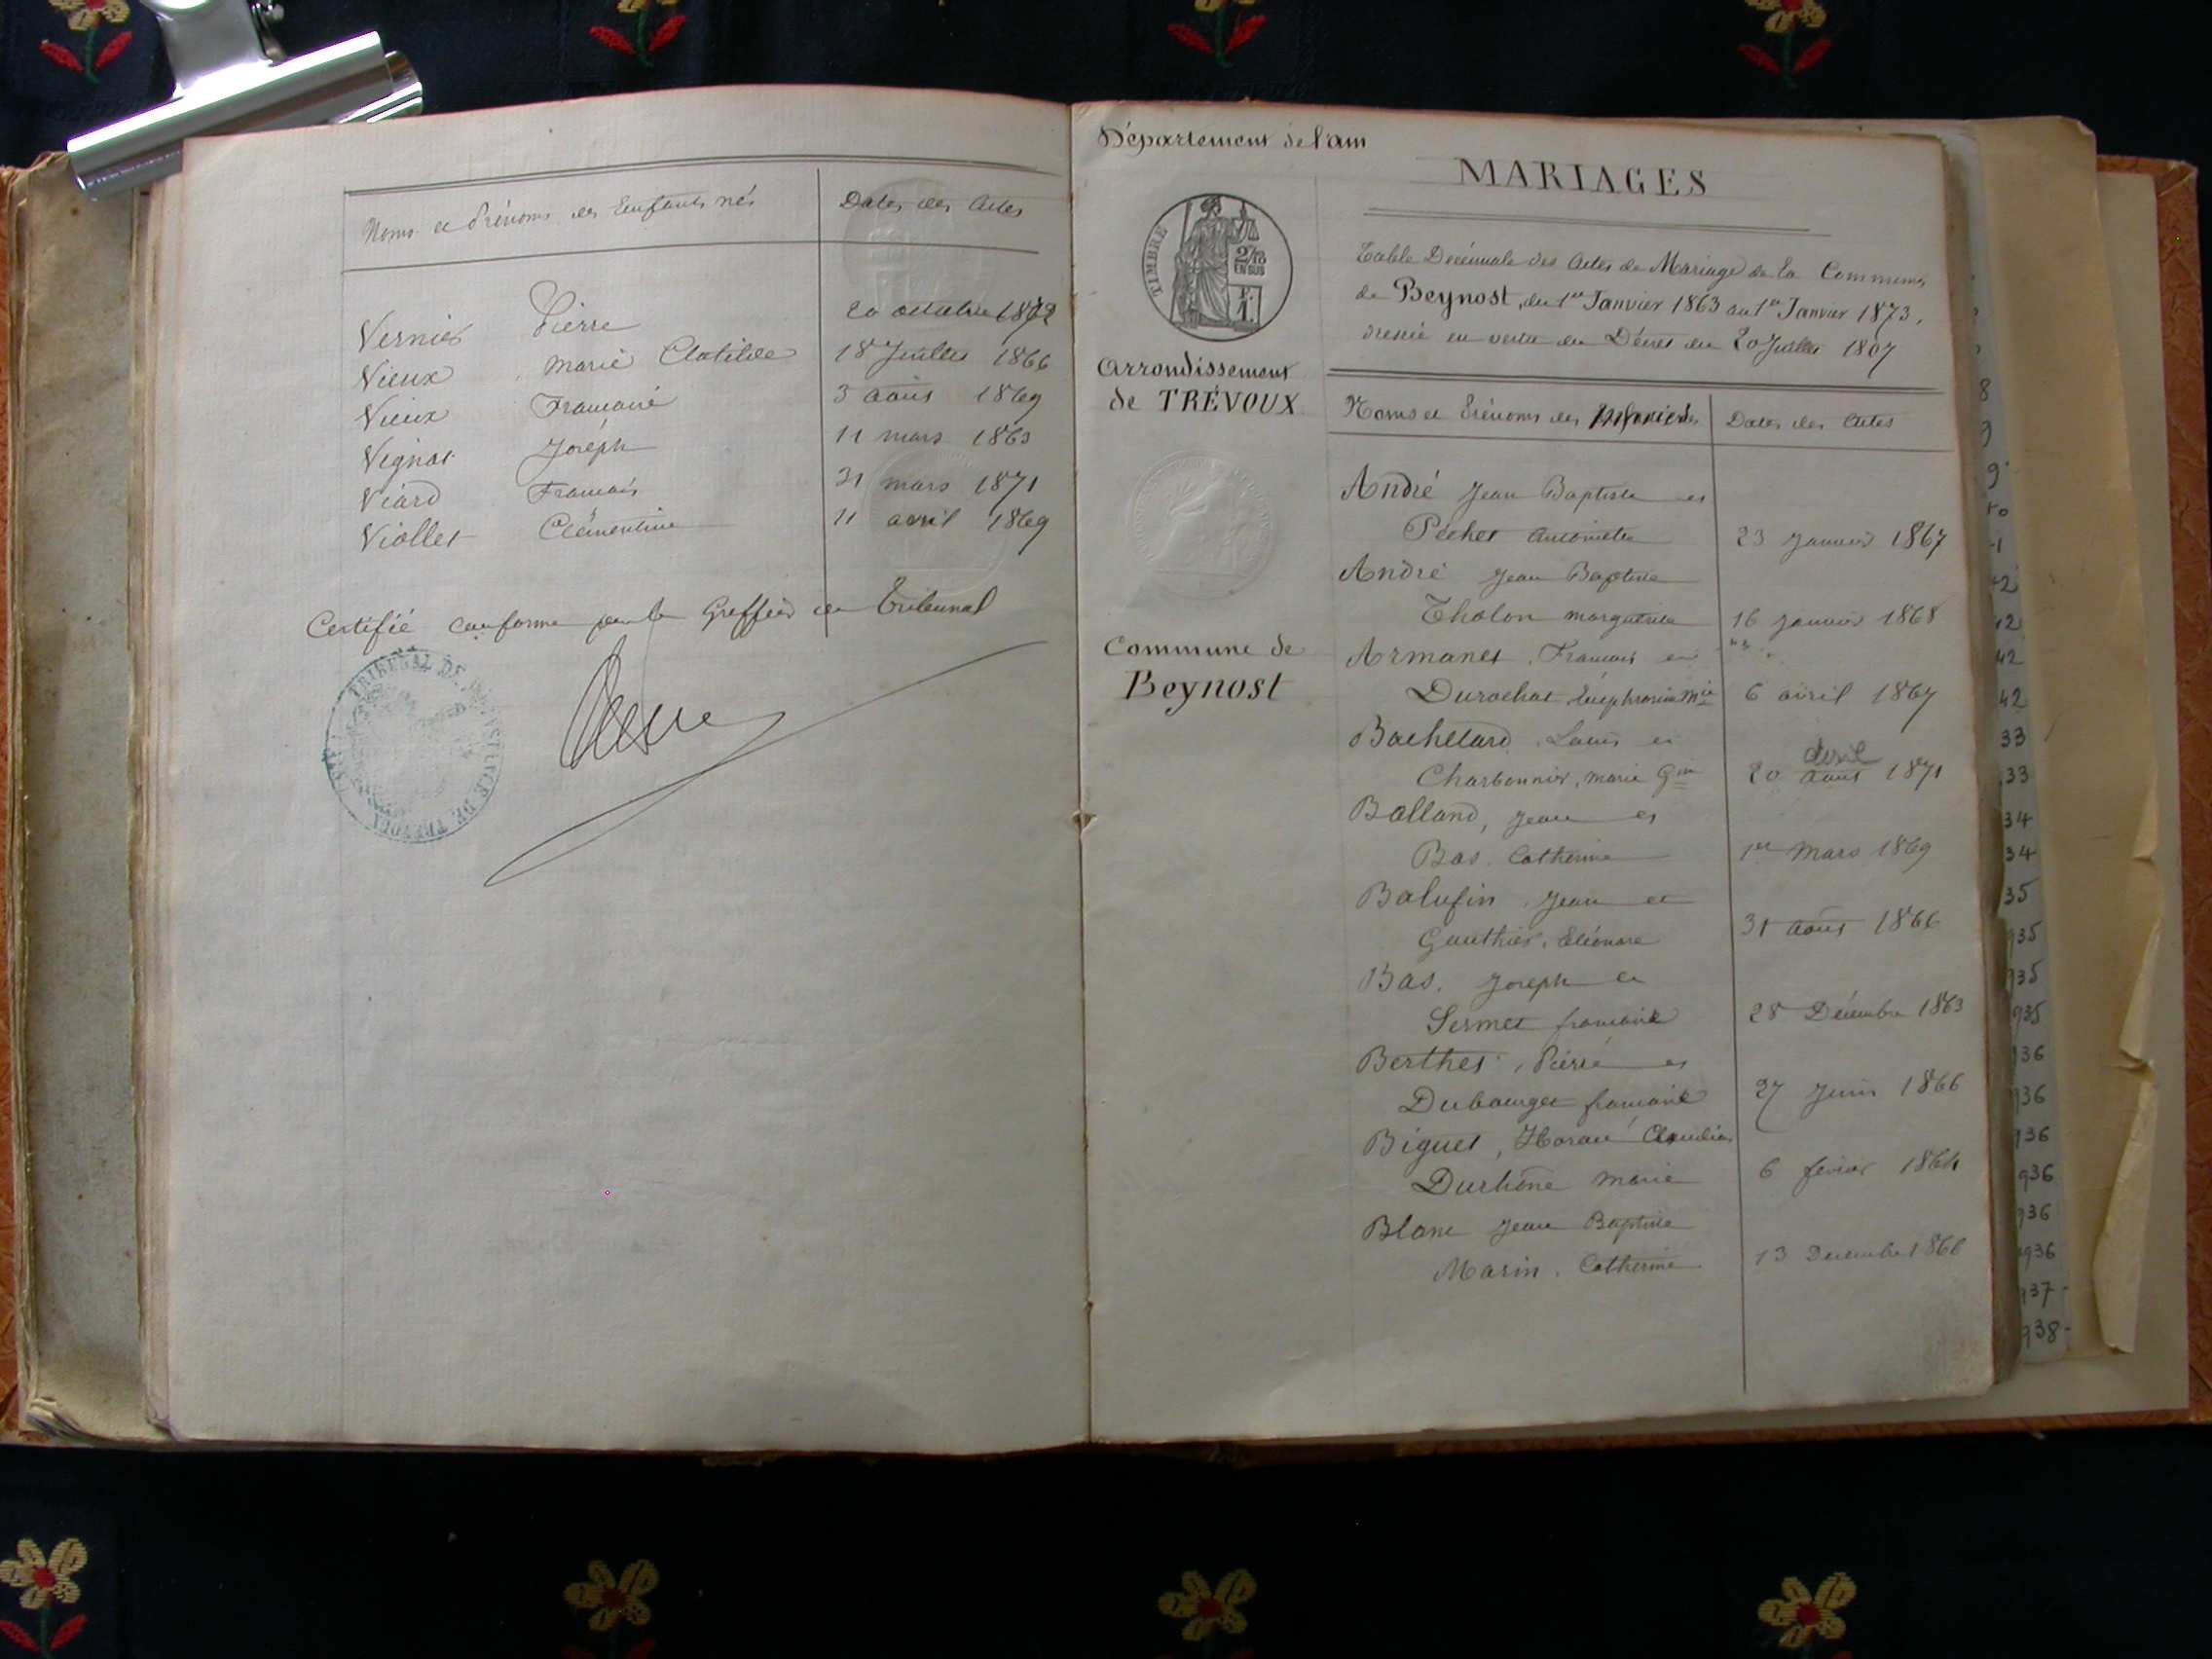 Noms et Prénoms des Enfants nés Dates des Actes
Vernier Pierre 20 octobre 1872
Vieux Marie Clotilde 18 Juillet 1866
Vieux Françoise 3 août 1869
Vignat Joseph 11 mars 1863
Viard François 31 mars 1871
Viollet Clémentine 11 avril 1869
Certifié conforme par le Greffier du Tribunal
TRIBUNAL DE INSTANCE DE TRÉVOUX
Département de l'ain
MARIAGES
TIMBRE
2/10
EN SUS
Table Décennale des Actes de Mariage de la Commune
de Beynost, du 1er Janvier 1863 au 1er Janvier 1873,
dressée en vertu du Décret du 20 Juillet 1807
Arrondissement
de TRÉVOUX
Noms et Prénoms des Dates des Actes
André Jean Baptiste et
Péchet Antoinette 23 Janvier 1867
André Jean Baptiste
Tholon marguerite 16 Janvier 1868
Commune de
Beynost
Armanet, François et
Durochat, Euphrosine Mie 6 avril 1867
Bachelard, Louis et
avril
Charbonnier, marie 20 août 1871
Balland, Jean et
Bas. Catherine 1er Mars 1869
Balufin, Jean et
Gauthier, Eléonore 31 août 1866
Bas, Joseph et
Sermet françoise 28 Décembre 1863
Berthet, Pierre et
Dubourget françoise 27 Juin 1866
Biguet, Horace
Durhône Marie 6 février 1864
Blanc Jean Baptiste
Marin, Catherine 13 Decembre 1866
8
9
42
42
42
33
33
34
34
35
935
935
935
936
936
936
936
936
936
937-
938-